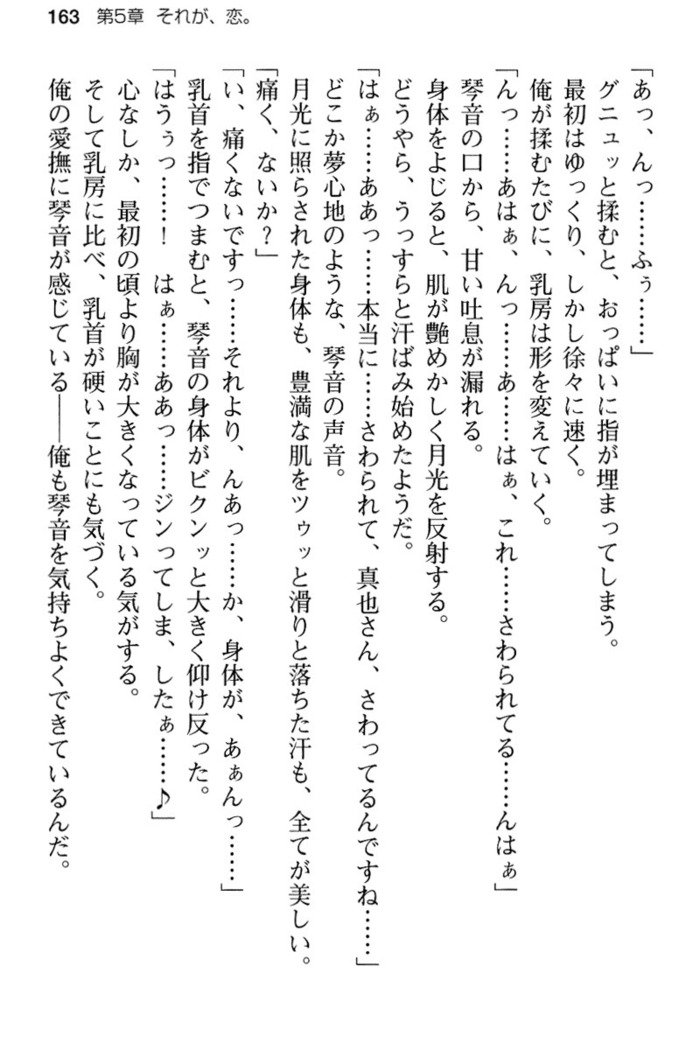 163 第5章 それが、恋。
「あっ、んっ……ふぅ……」
グニュッと揉むと、おっぱいに指が埋まってしまう。
最初はゆっくり、しかし徐々に速く。
俺が揉むたびに、乳房は形を変えていく。
「んっ……あはぁ、んっ……あ……はぁ、これ……さわられてる……んはぁ」
琴音の口から、甘い吐息が漏れる。
身体をよじると、肌が艶めかしく月光を反射する。
どうやら、うっすらと汗ばみ始めたようだ。
「はぁ……ああっ……本当に……さわられて、真也さん、さわってるんですね……」
どこか夢心地のような、琴音の声音。
月光に照らされた身体も、豊満な肌をツゥッと滑りと落ちた汗も、全てが美しい。
「痛く、ないか？」
「い、痛くないですっ……それより、んあっ……か、身体が、あぁんっ……」
乳首を指でつまむと、琴音の身体がビクンッと大きく仰け反った。
「はうぅっ……！　はぁ……ああっ……ジンってしま、したぁ……♪」
心なしか、最初の頃より胸が大きくなっている気がする。
そして乳房に比べ、乳首が硬いことにも気づく。
俺の愛撫に琴音が感じている――俺も琴音を気持ちよくできているんだ。